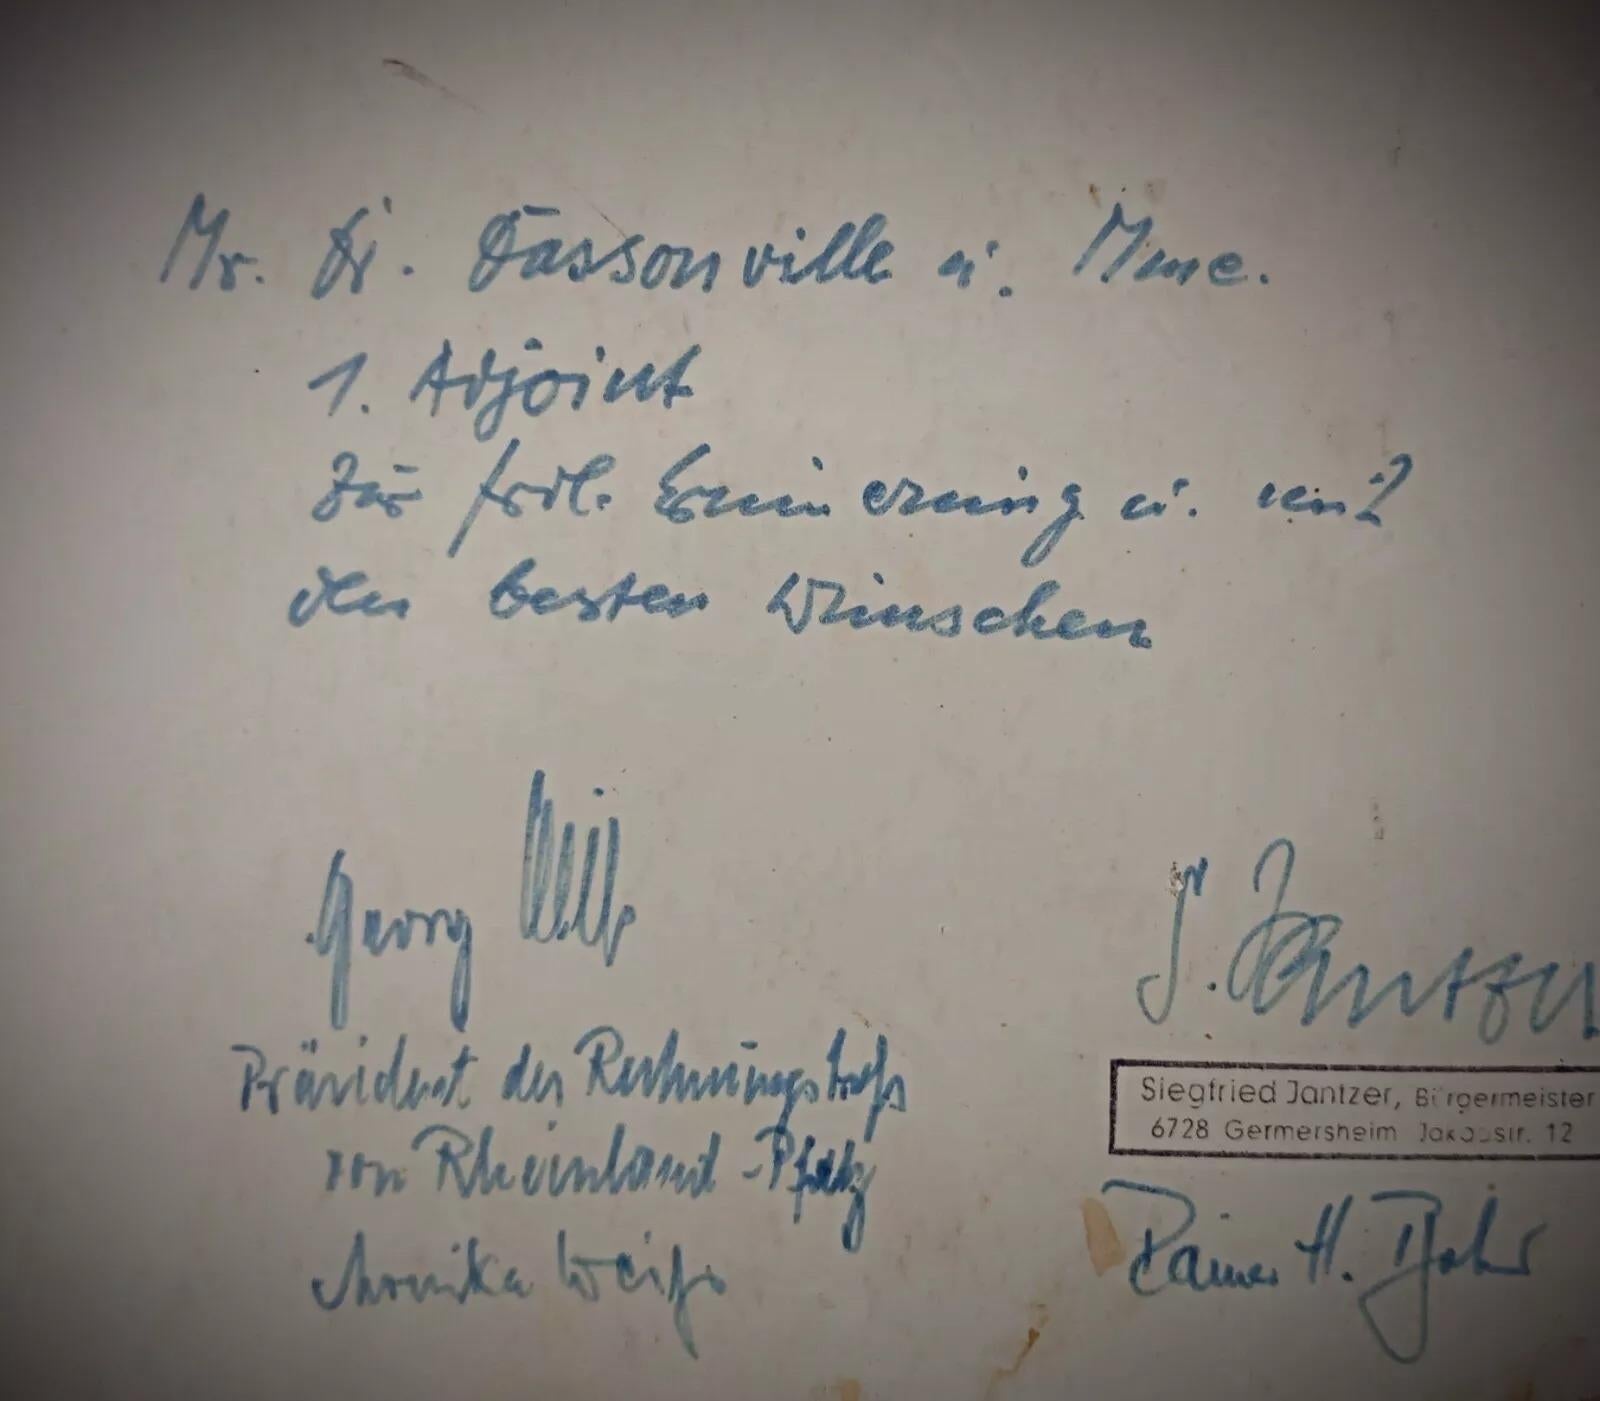 Mr. Dr. Dassonville u. Mme.
1. Adjoint
Zur frdl. Erinnerung u. mit
den besten Wünschen
Georg
S. Jantzer
Präsident des Rechnungshofs
von Rheinland-Pfalz
Siegfried Jantzer, Bürgermeister
6728 Germersheim Jakobstr. 12
Monika Weiß
Rainer H.